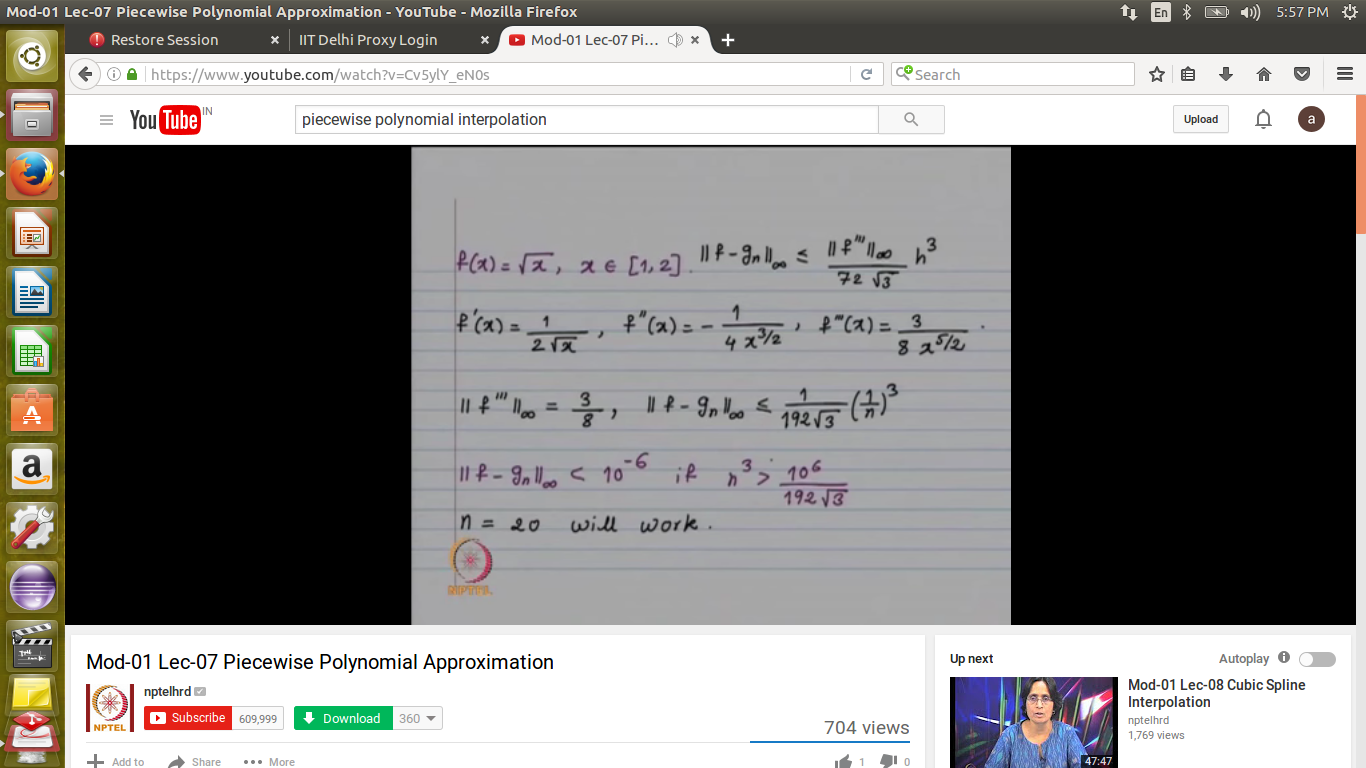 Mod-01 Lec-07 Piecewise Polynomial Approximation - YouTube - Mozilla Firefox
En
5:57 PM
Restore Session × IIT Delhi Proxy Login × Mod-01 Lec-07 Pi... × +
https://www.youtube.com/watch?v=Cv5ylY_eN0s
Search
YouTube IN
piecewise polynomial interpolation
Upload
a
f(x) = √x, x ∈ [1, 2]. ||f - gₙ||∞ ≤ ||f'''||∞ / 72√3 h³
f'(x) = 1 / 2√x, f''(x) = - 1 / 4 x^3/2, f'''(x) = 3 / 8 x^5/2.
||f'''||∞ = 3/8, ||f - gₙ||∞ ≤ 1 / 192√3 (1/n)³
||f - gₙ||∞ < 10⁻⁶ if n³ > 10⁶ / 192√3
n = 20 will work.
NPTEL
Mod-01 Lec-07 Piecewise Polynomial Approximation
NPTEL
nptelhrd
Subscribe 609,999 Download 360
704 views
Add to Share More 1 0
Up next Autoplay
Mod-01 Lec-08 Cubic Spline
Interpolation
nptelhrd
1,769 views
47:47